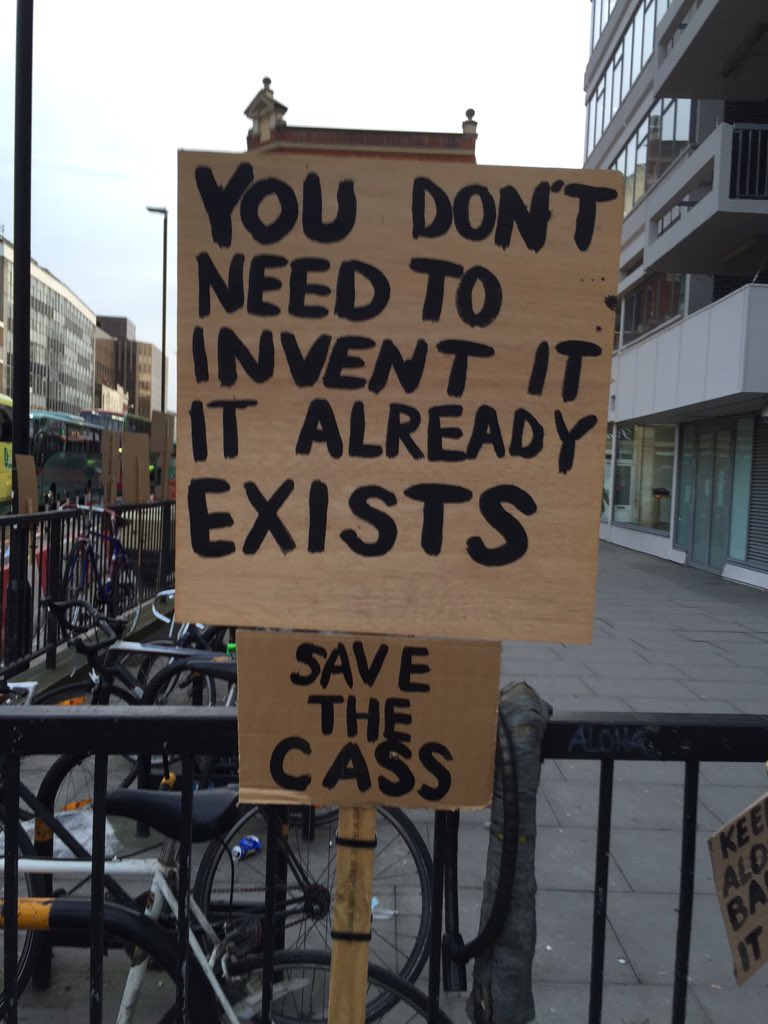 YOU DON'T
NEED TO
INVENT IT
IT ALREADY
EXISTS
SAVE
THE
CASS
ALOHA
KEE
ALD
BA
IT